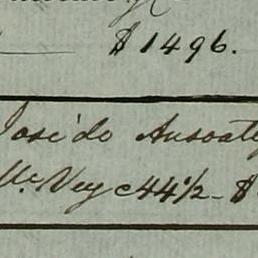 $1496.
José do Ansoate
Mc Vey c 44½ - $